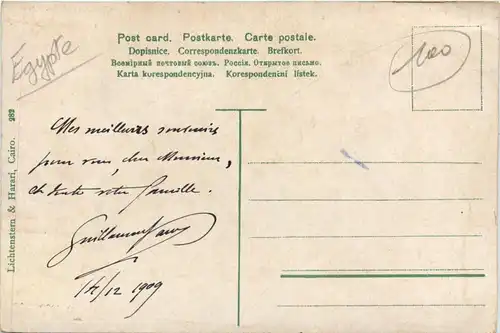 Post card. Postkarte. Carte postale.
Dopisnice. Correspondenzkarte. Brefkort.
Всемірный почтовый союзъ. Россія. Открытое письмо.
Karta korespondencyjna. Korespondenini listek.
Egypte
100
Lichtenstern & Harari, Cairo. 282
Mes meilleurs souvenirs
pour vous, cher Monsieur,
et toute votre famille.
14/12 1909